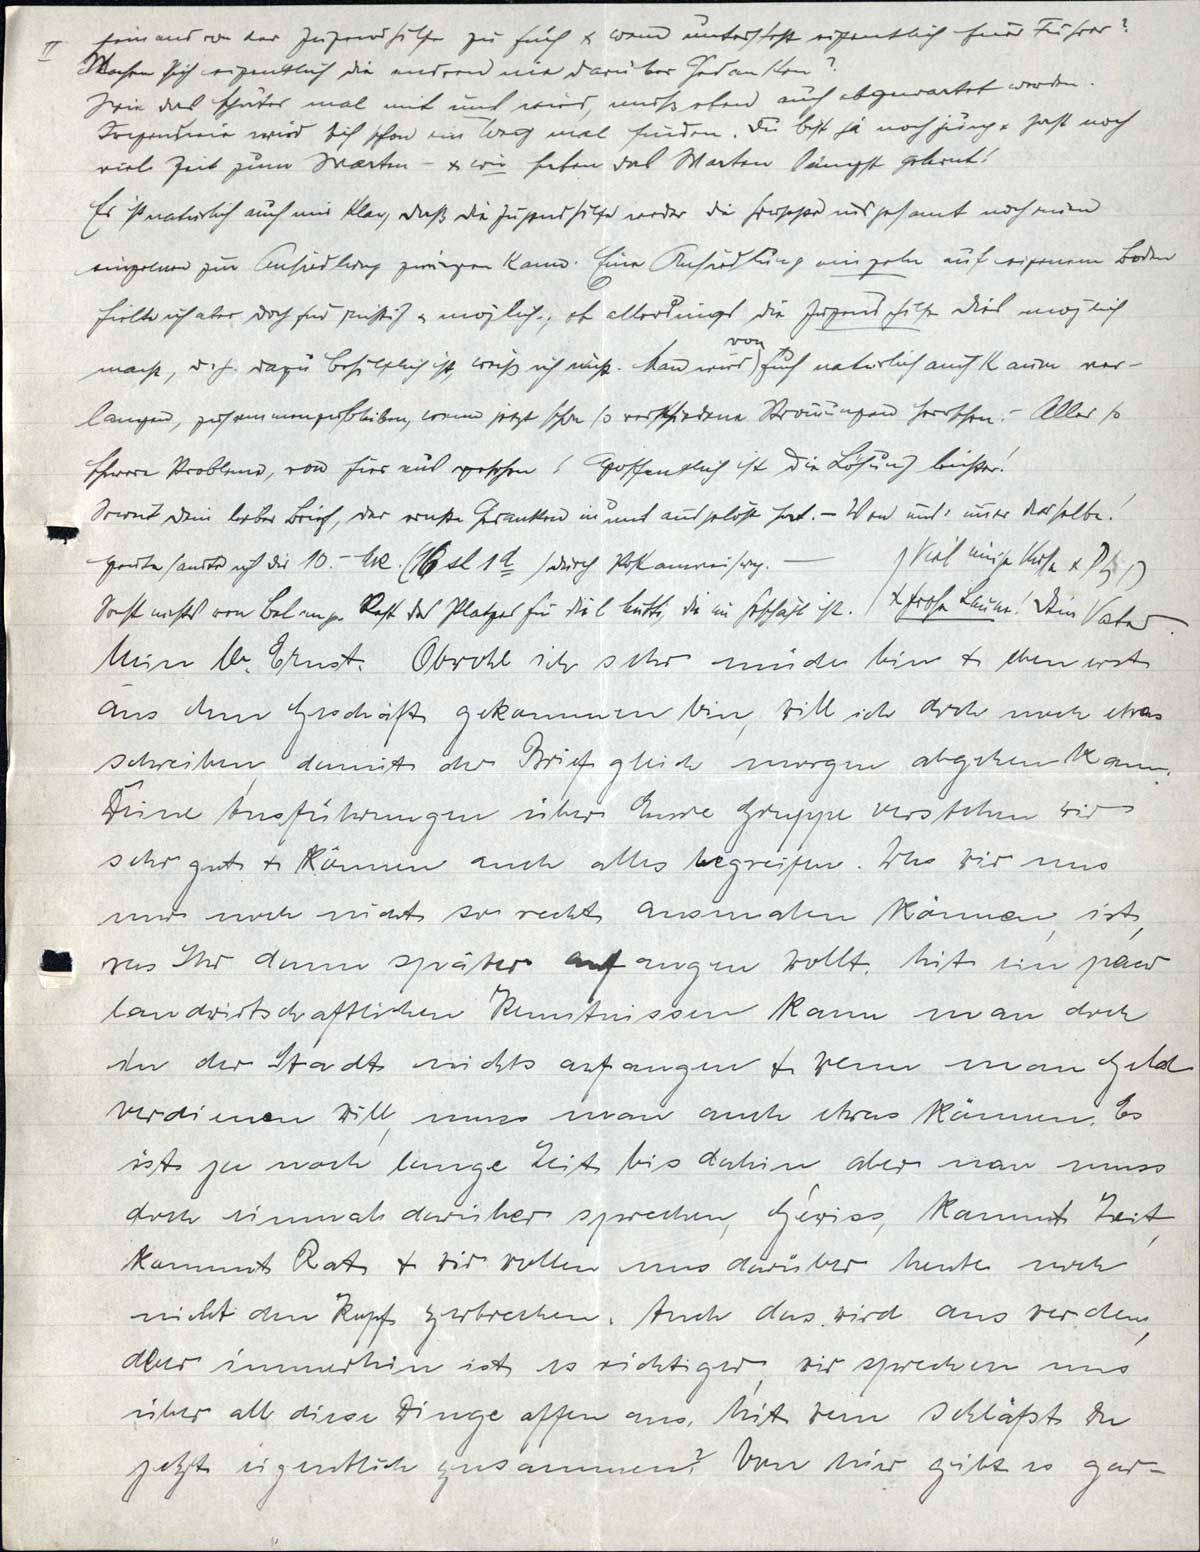 II
jemand von der Jugendhilfe zu Euch & wem untersteht eigentlich Euer Führer?
Machen sich eigentlich die anderen nie darüber Gedanken?
Wie das später mal mit uns wird, muß eben auch abgewartet werden.
Irgendwie wird sich schon ein Weg mal finden. Du bist ja noch jung & hast noch
viel Zeit zum Warten – & wir haben das Warten längst gelernt!
Es ist natürlich auch mir klar, daß die Jugendhilfe weder die Gruppe insgesamt noch einen
einzelnen zur Ansiedlung zwingen kann. Eine Ansiedlung einzeln auf eigenem Boden
hielte ich aber doch für richtig & möglich; ob allerdings die Jugendhilfe dies möglich
macht, d.h. dazu behilflich ist, weiß ich nicht. Man wird von Euch natürlich auch kaum ver-
langen, zusammenzubleiben, wenn jetzt schon so verschiedene Strömungen herrschen. – Alles so
schwere Probleme, von hier aus gesehen! Hoffentlich ist die Lösung leichter!
Soweit Dein lieber Brief, der ernste Gedanken in uns ausgelöst hat. –
Heute sandte ich Dir 10.– Mk. durch Postanweisung. –
Sonst nichts von Belang. Rest des Platzes für die l. Mutti, die im Geschäft ist.
Viel innige Küsse &
& frohe Laune! Dein Vater.
Mein lb. Ernst. Obwohl ich sehr müde bin & eben erst
aus dem Geschäft gekommen bin, will ich doch noch etwas
schreiben, damit der Brief gleich morgen abgehen kann.
Deine Ausführungen über Eure Gruppe verstehen wir
sehr gut & können auch alles begreifen. Was wir uns
nur noch nicht so recht ausmalen können, ist,
was Ihr dann später anfangen wollt. Mit ein paar
landwirtschaftlichen Kenntnissen kann man doch
in der Stadt nichts anfangen & wenn man Geld
verdienen will, muss man auch etwas können. Es
ist ja noch lange Zeit bis dahin aber man muss
doch einmal darüber sprechen, Gewiss, kommt Zeit,
kommt Rat & wir wollen uns darüber heute noch
nicht den Kopf zerbrechen. Auch das wird aus werden,
aber immerhin ist es richtiger, wir sprechen uns
über all diese Dinge offen aus. Mit wem schläfst Du
jetzt eigentlich zusammen? Von hier gibt es gar-